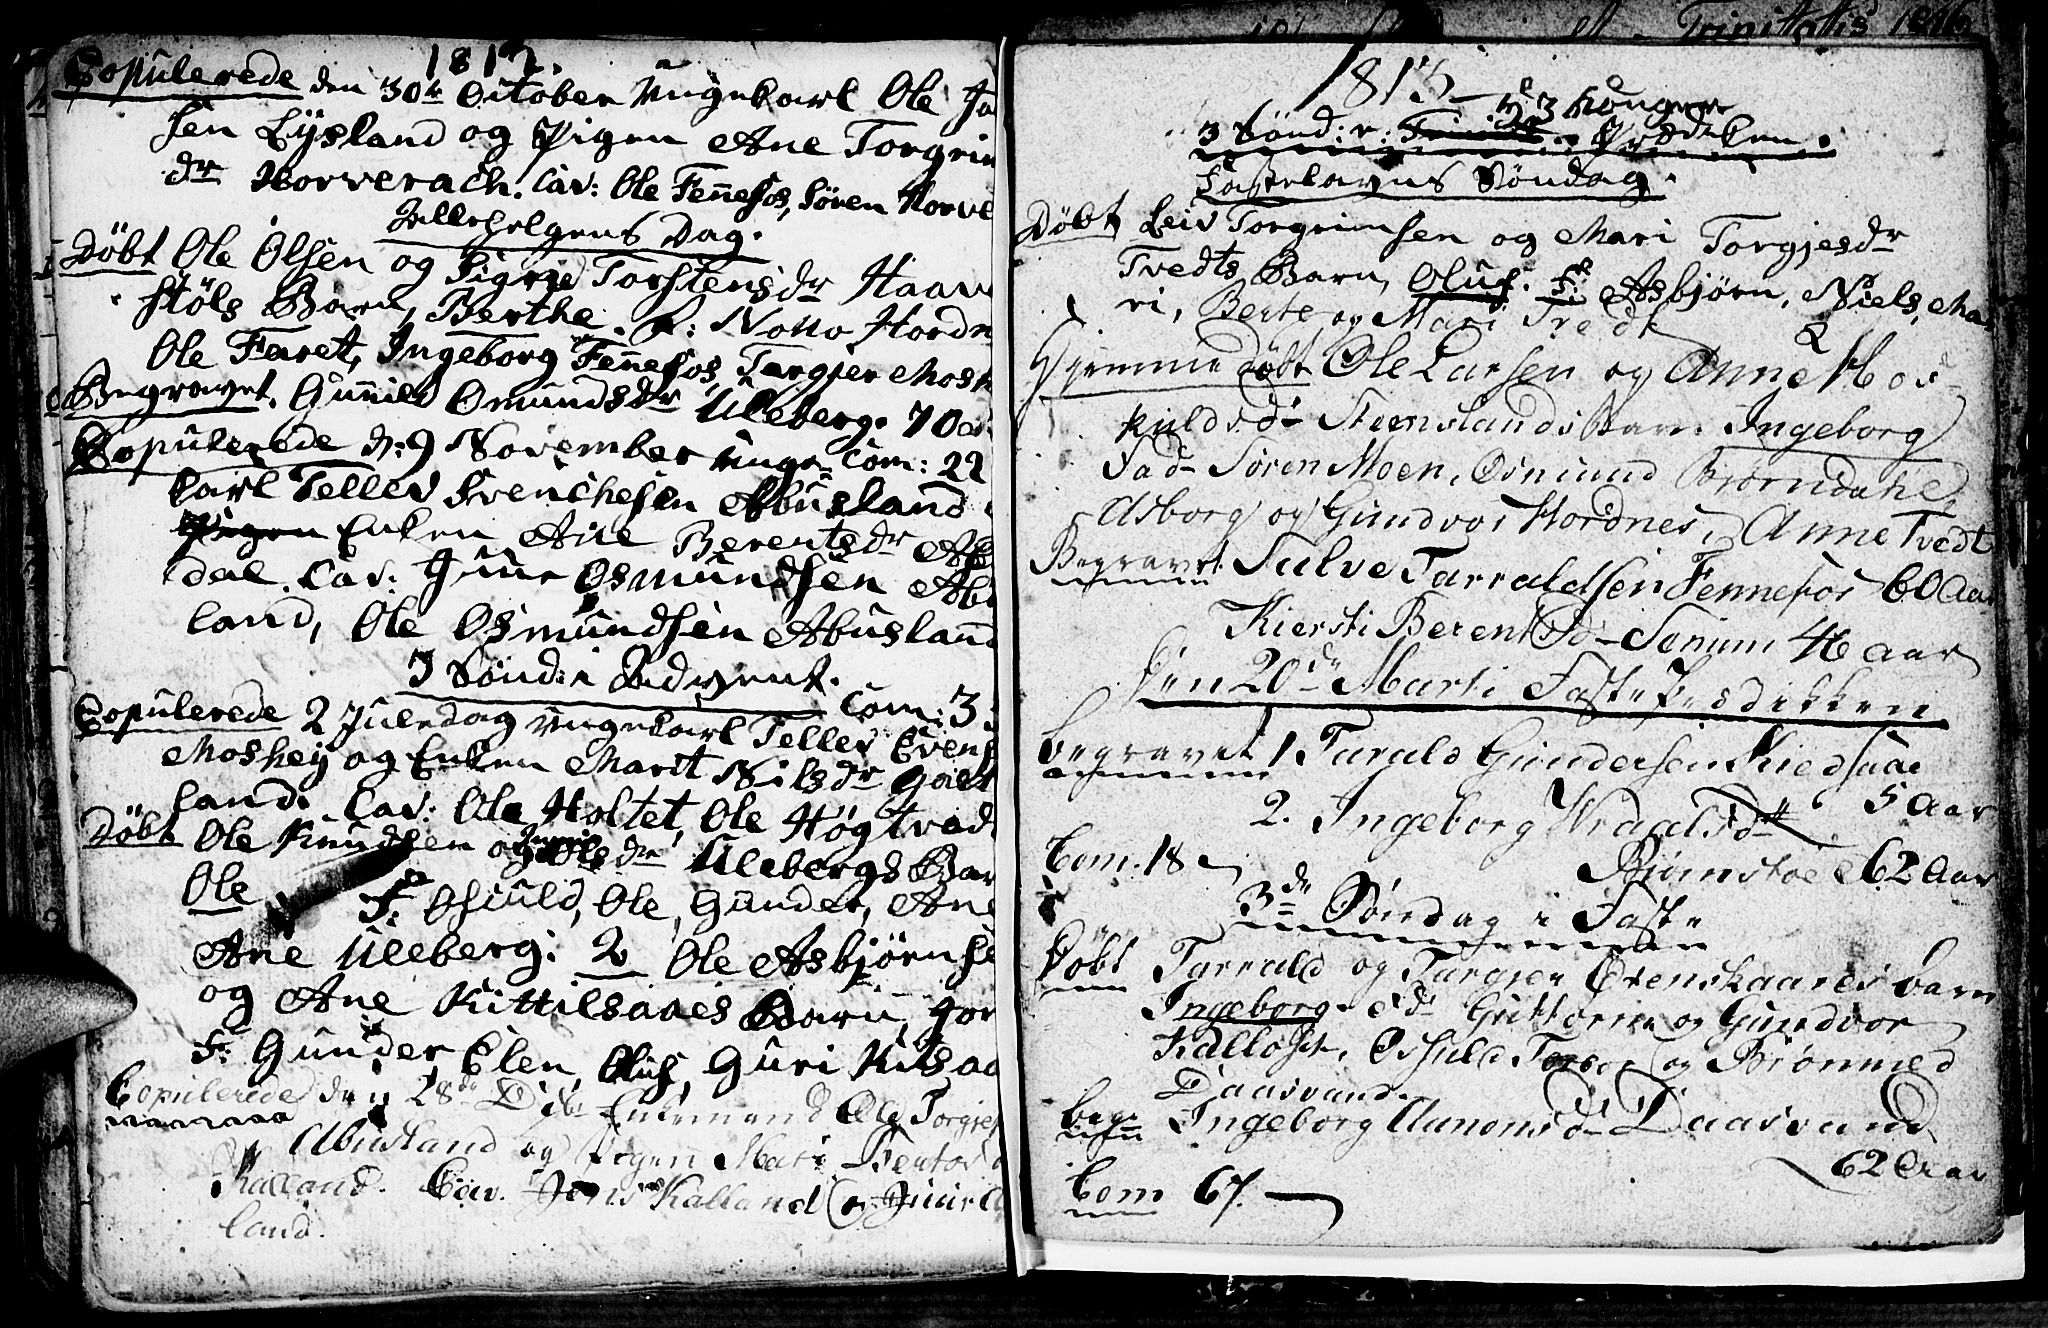 1812.
Copulerede den 30te October Ungekarl Ole
sen Lysland og Pigen Ane Torgrim
dr Horverach. Cav: Ole Fennefos, Søren Horve
Allehelgens Dag.
Døbt Ole Olsen og Sigrid Torstensdr Haav
støls Barn, Berthe. F: Hordn
Ole Faret, Ingeborg Fennefos, Torgier Mosh
Begravet. Gunild Omundsdr Uleberg. 70
Copulerede d: 9 November Unge Com: 22
karl Tellev Svenchesen Abusland
Pigen Enken Ane Berentsdr
dal. Cav: Osmundsen Ab
land, Ole Osmundsen Abusland
3 Sønd: i Advent.
Com: 3
Copulerede 2 Juledag Ungekarl Tellev Evens
Moshey og Enken Marit Nilsdr
land. Cav: Ole Holtet, Ole Høgtvedt
Døbt Ole Knudsen og Olsdr Ulebergs Bar
Ole F: Osuld, Ole, Gunder, Ane
Ane Uleberg. 2 Ole Asbjørnse
og Ane Kittilsaaes Barn,
F: Gunder, Elen, Oluf, Guri Kitsaa
Copulerede den 28de Enkemand Ole Torgjes
Abusland og Pigen Mari
Kalland. Cav. Jens Kalland og
land.
Trinitatis
1813
3 Sønd: v: Prædiken.
Fastelavns Søndag.
Døbt Leiv Torgrimsen og Mari Torgjesdr
Tvedts Barn, Oluf. F: Asbjørn, Niels, Ma
ri, Berte og Mari Tvedt
Hjemmedøbt Ole Larsen og Anne Hos-
kuldsd Steenslands Barn Ingeborg
Fad- Søren Moen, Osmund Bjørndahl,
Asborg og Gundvor Hordnes, Anne Tvedt
Begravet Sulve Tarraldsen Fennefos 60 Aar
Kiersti Berentsd- Senum 46 aar
Den 20de Marti Faste Prædikken
Begravet 1. Tarald Gundersen Kiedsaae
5 Aar
2. Ingeborg
Com. 18 62 Aar
3de Søndag i Faste
Døbt Tarrald og Targjer Øvenskaares barn
Ingeborg. Fd Guttorm og Gundvor
Kallost, Osuld og Brønned
Daasvand.
Beg: Ingeborg Aanonsd- Daasvand
62 Aar
Com 67.